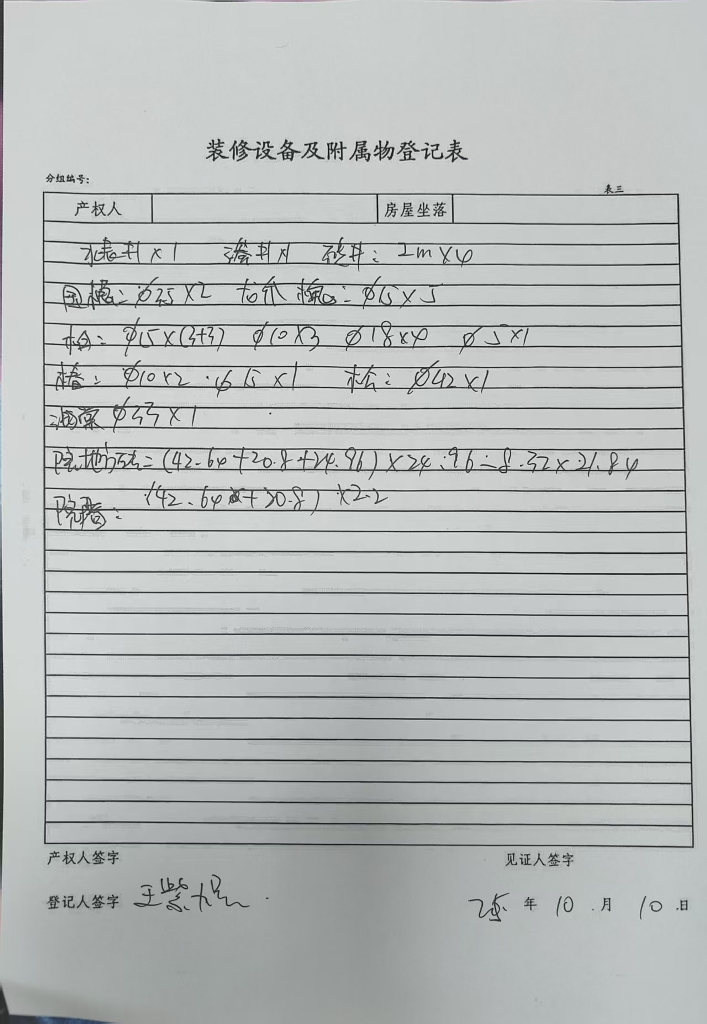 装修设备及附属物登记表
分组编号: 表三
产权人 房屋坐落
水表井×1 渗井×1 砖井: 2m×4
国槐: φ35×2 龙爪槐: φ15×5
φ15×(3+3) φ10×3 φ18×4 φ5×1
椿: φ10×2 φ15×1 松: φ42×1
海棠 φ33×1
院地砖: (42.64+20.8+24.96)×24.96-8.32×21.84
院墙: (42.64+20.8)×2.2
产权人签字 见证人签字
登记人签字 王紫 年 10 月 10 日